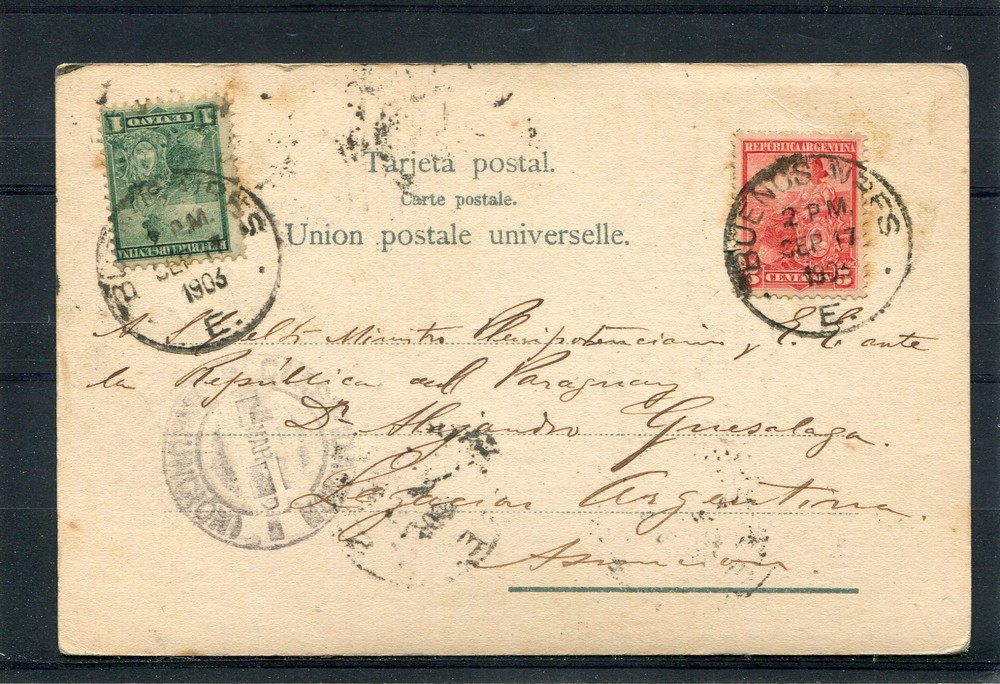 1 CENTAVO 1
REPUBLICA ARGENTINA
BUENOS AIRES
P.M.
SEP
1903
E.
REPÚBLICA ARGENTINA
5 CENTAVOS 5
BUENOS AIRES
2 P M
SEP 17
1903
E
Tarjeta postal.
Carte postale.
Union postale universelle.
A S. Ministro Plenipotenciario y E. E. ante
la República del Paraguay
Dr. Alejandro Guesalaga.
Legacion Argentina.
Asuncion